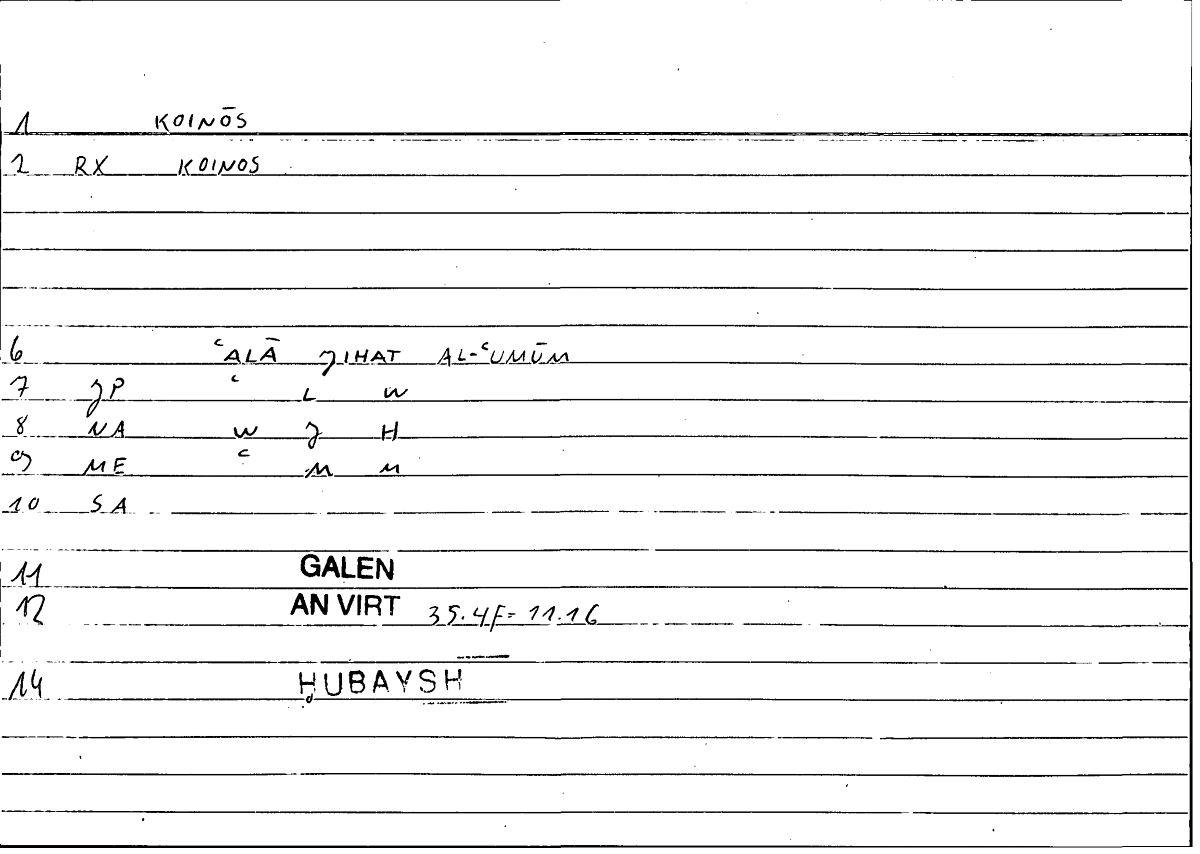 1 KOINŌS
2 RX KOINOS
6 ʿALĀ JIHAT AL-ʿUMŪM
7 JP ʿ L W
8 NA W J H
9 ME ʿ M M
10 SA
11 GALEN
12 AN VIRT 35.4F= 11.16
14 ḤUBAYSH